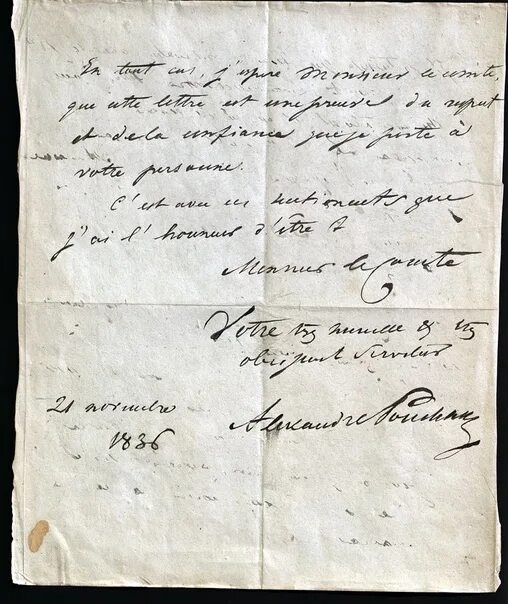 En tout cas, j'espère Monsieur le Comte,
que cette lettre est une preuve du respect
et de la confiance que je porte à
votre personne.
C'est avec ces sentiments que
j'ai l'honneur d'être
Monsieur le Comte
Votre très humble & très
obéissant Serviteur
21 novembre
1836
Alexandre Pouchkin